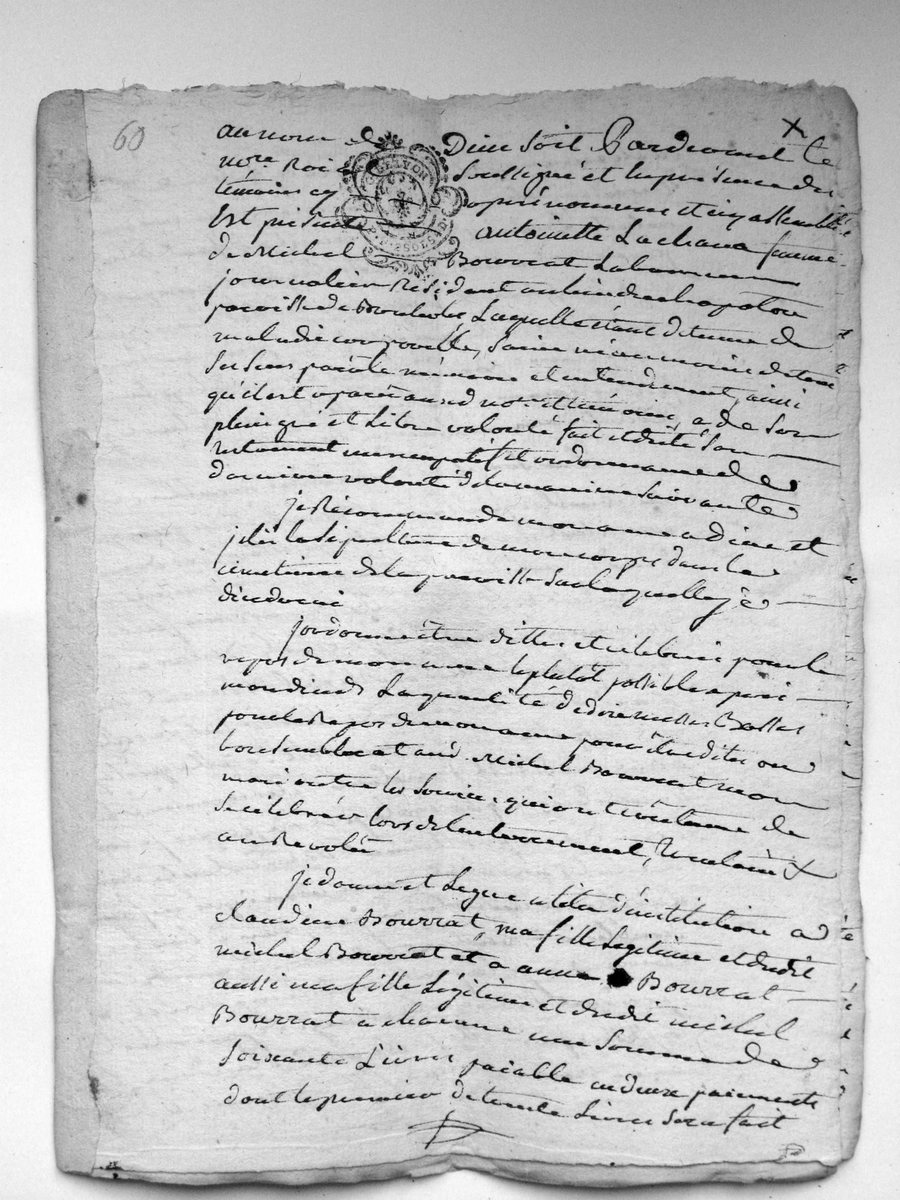 60
au nom de Dieu soit Pardevant le
nore Roial Soussigné et En présence des
témoins cy après nommés et
Est présente antoinette Lachana femme
de Michel Bourrat Laboureur
journalier Résident au lieu de
paroisse de Laquelle étant détenue de
maladie corporelle, Saine néanmoins de tous
Ses Sens parole mémoire et entendement, ainsi
qu'il est aparu aud nore et témoins, a de Son
plein gré et Libre volonté fait et dicté Son
testament nuncupatif et ordonnance de
dernière volonté de la manière Suivante
je Récommande mon ame a Dieu et
la Sépulture de mon corps dans le
cimetière de la paroisse Sur laquelle je
décéderai
j'ordonne être dittes et célébrées pour le
repos de mon ame le plutôt possible après
mon décès La quantité de messes Basses
pour le Repos de mon ame pour être dites ou
bon Semblera aud. Michel Bourrat mon
mari outre les Services qui ont coutume de
Se célébrer lors de l'enterrement,
au Révolu
je donne et Legue a titre d'institution a
claudine Bourrat, ma fille Légitime et dudit
michel Bourrat et a anne Bourrat
aussi ma fille Légitime et dudit michel
Bourrat a chacune une Somme de
Soixante Livres payable en deux paiements
dont le premier de trente Livres Sera fait